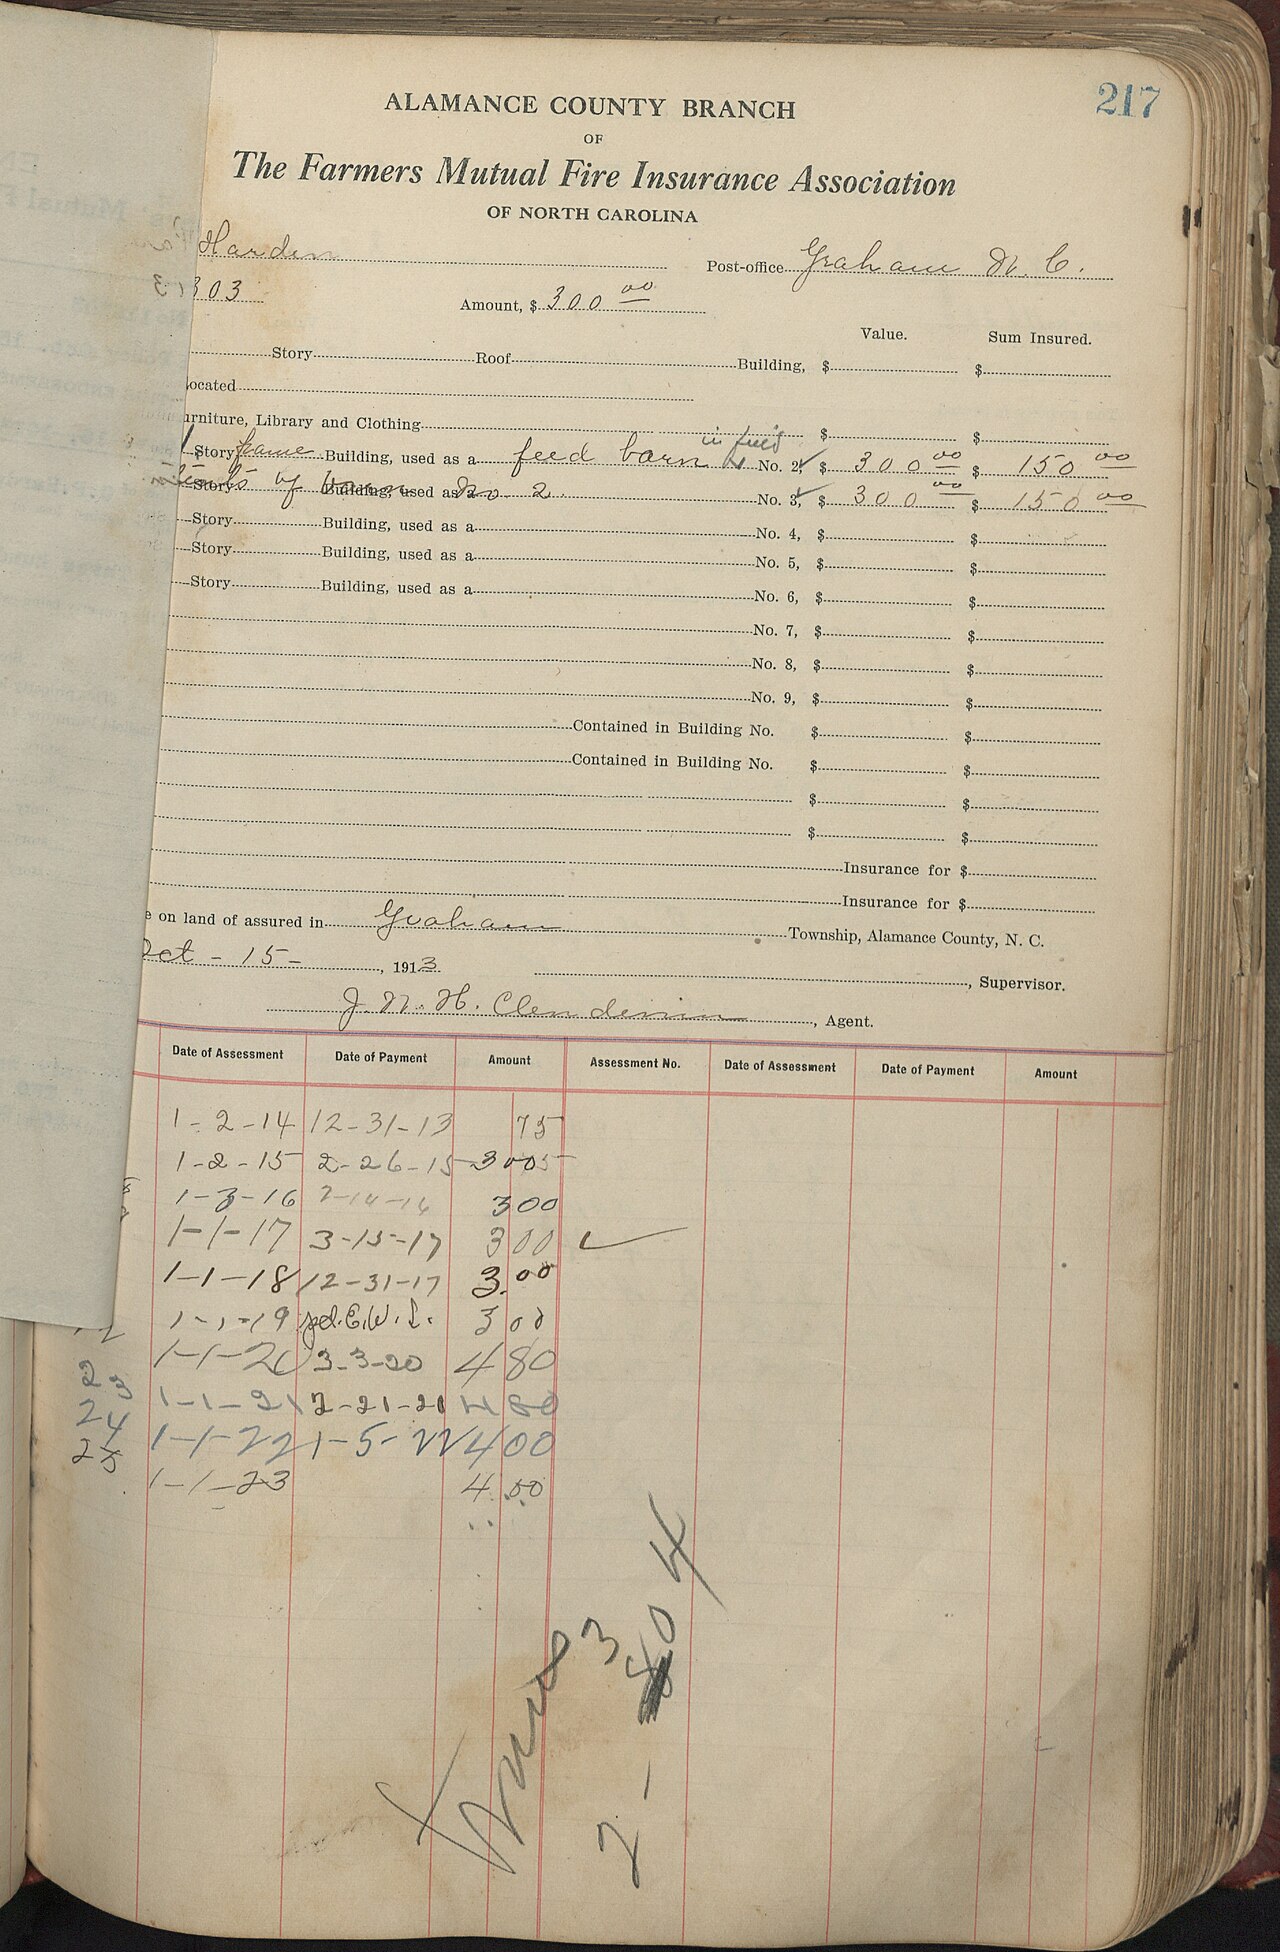 217
ALAMANCE COUNTY BRANCH
OF
The Farmers Mutual Fire Insurance Association
OF NORTH CAROLINA
Harden Post-office Graham N. C.
303 Amount, $ 300 00
Value. Sum Insured.
Story Roof Building, $ $
ocated
urniture, Library and Clothing $ $
in field
1 Story frame Building, used as a feed barn No. 2, $ 300 00 $ 150 00
Story Building, used as a of barn No 2 No. 3, $ 300 00 $ 150 00
Story Building, used as a No. 4, $ $
Story Building, used as a No. 5, $ $
Story Building, used as a No. 6, $ $
No. 7, $ $
No. 8, $ $
No. 9, $ $
Contained in Building No. $ $
Contained in Building No. $ $
$ $
$ $
Insurance for $
Insurance for $
e on land of assured in Graham Township, Alamance County, N. C.
Oct - 15 - , 1913 , Supervisor.
J. N. H. Clendenin , Agent.
Date of Assessment Date of Payment Amount Assessment No. Date of Assessment Date of Payment Amount
1-2-14 12-31-13 75
1-2-15 2-26-15 3 00
1-3-16 2-14-16 3 00
1-1-17 3-15-17 3 00
1-1-18 12-31-17 3.00
1-1-19 pd. E.W.L. 3 00
1-1-20 3-3-20 4 80
23 1-1-21 2-21-21 4 80
24 1-1-22 1-5-22 4 00
25 1-1-23 4.00
3
2 - 04